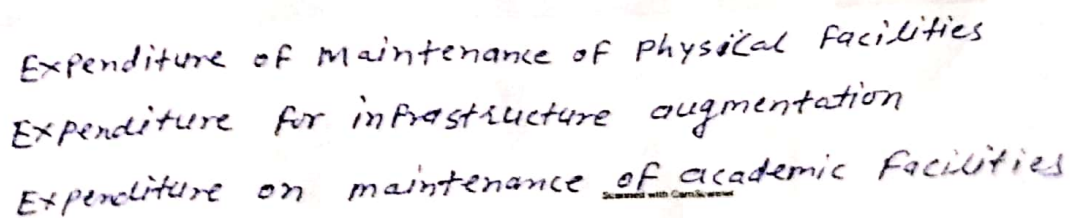 Expenditure of Maintenance of Physical Facilities
Expenditure for infrastructure augmentation
Expenditure on maintenance of academic Facilities
Scanned with CamScanner